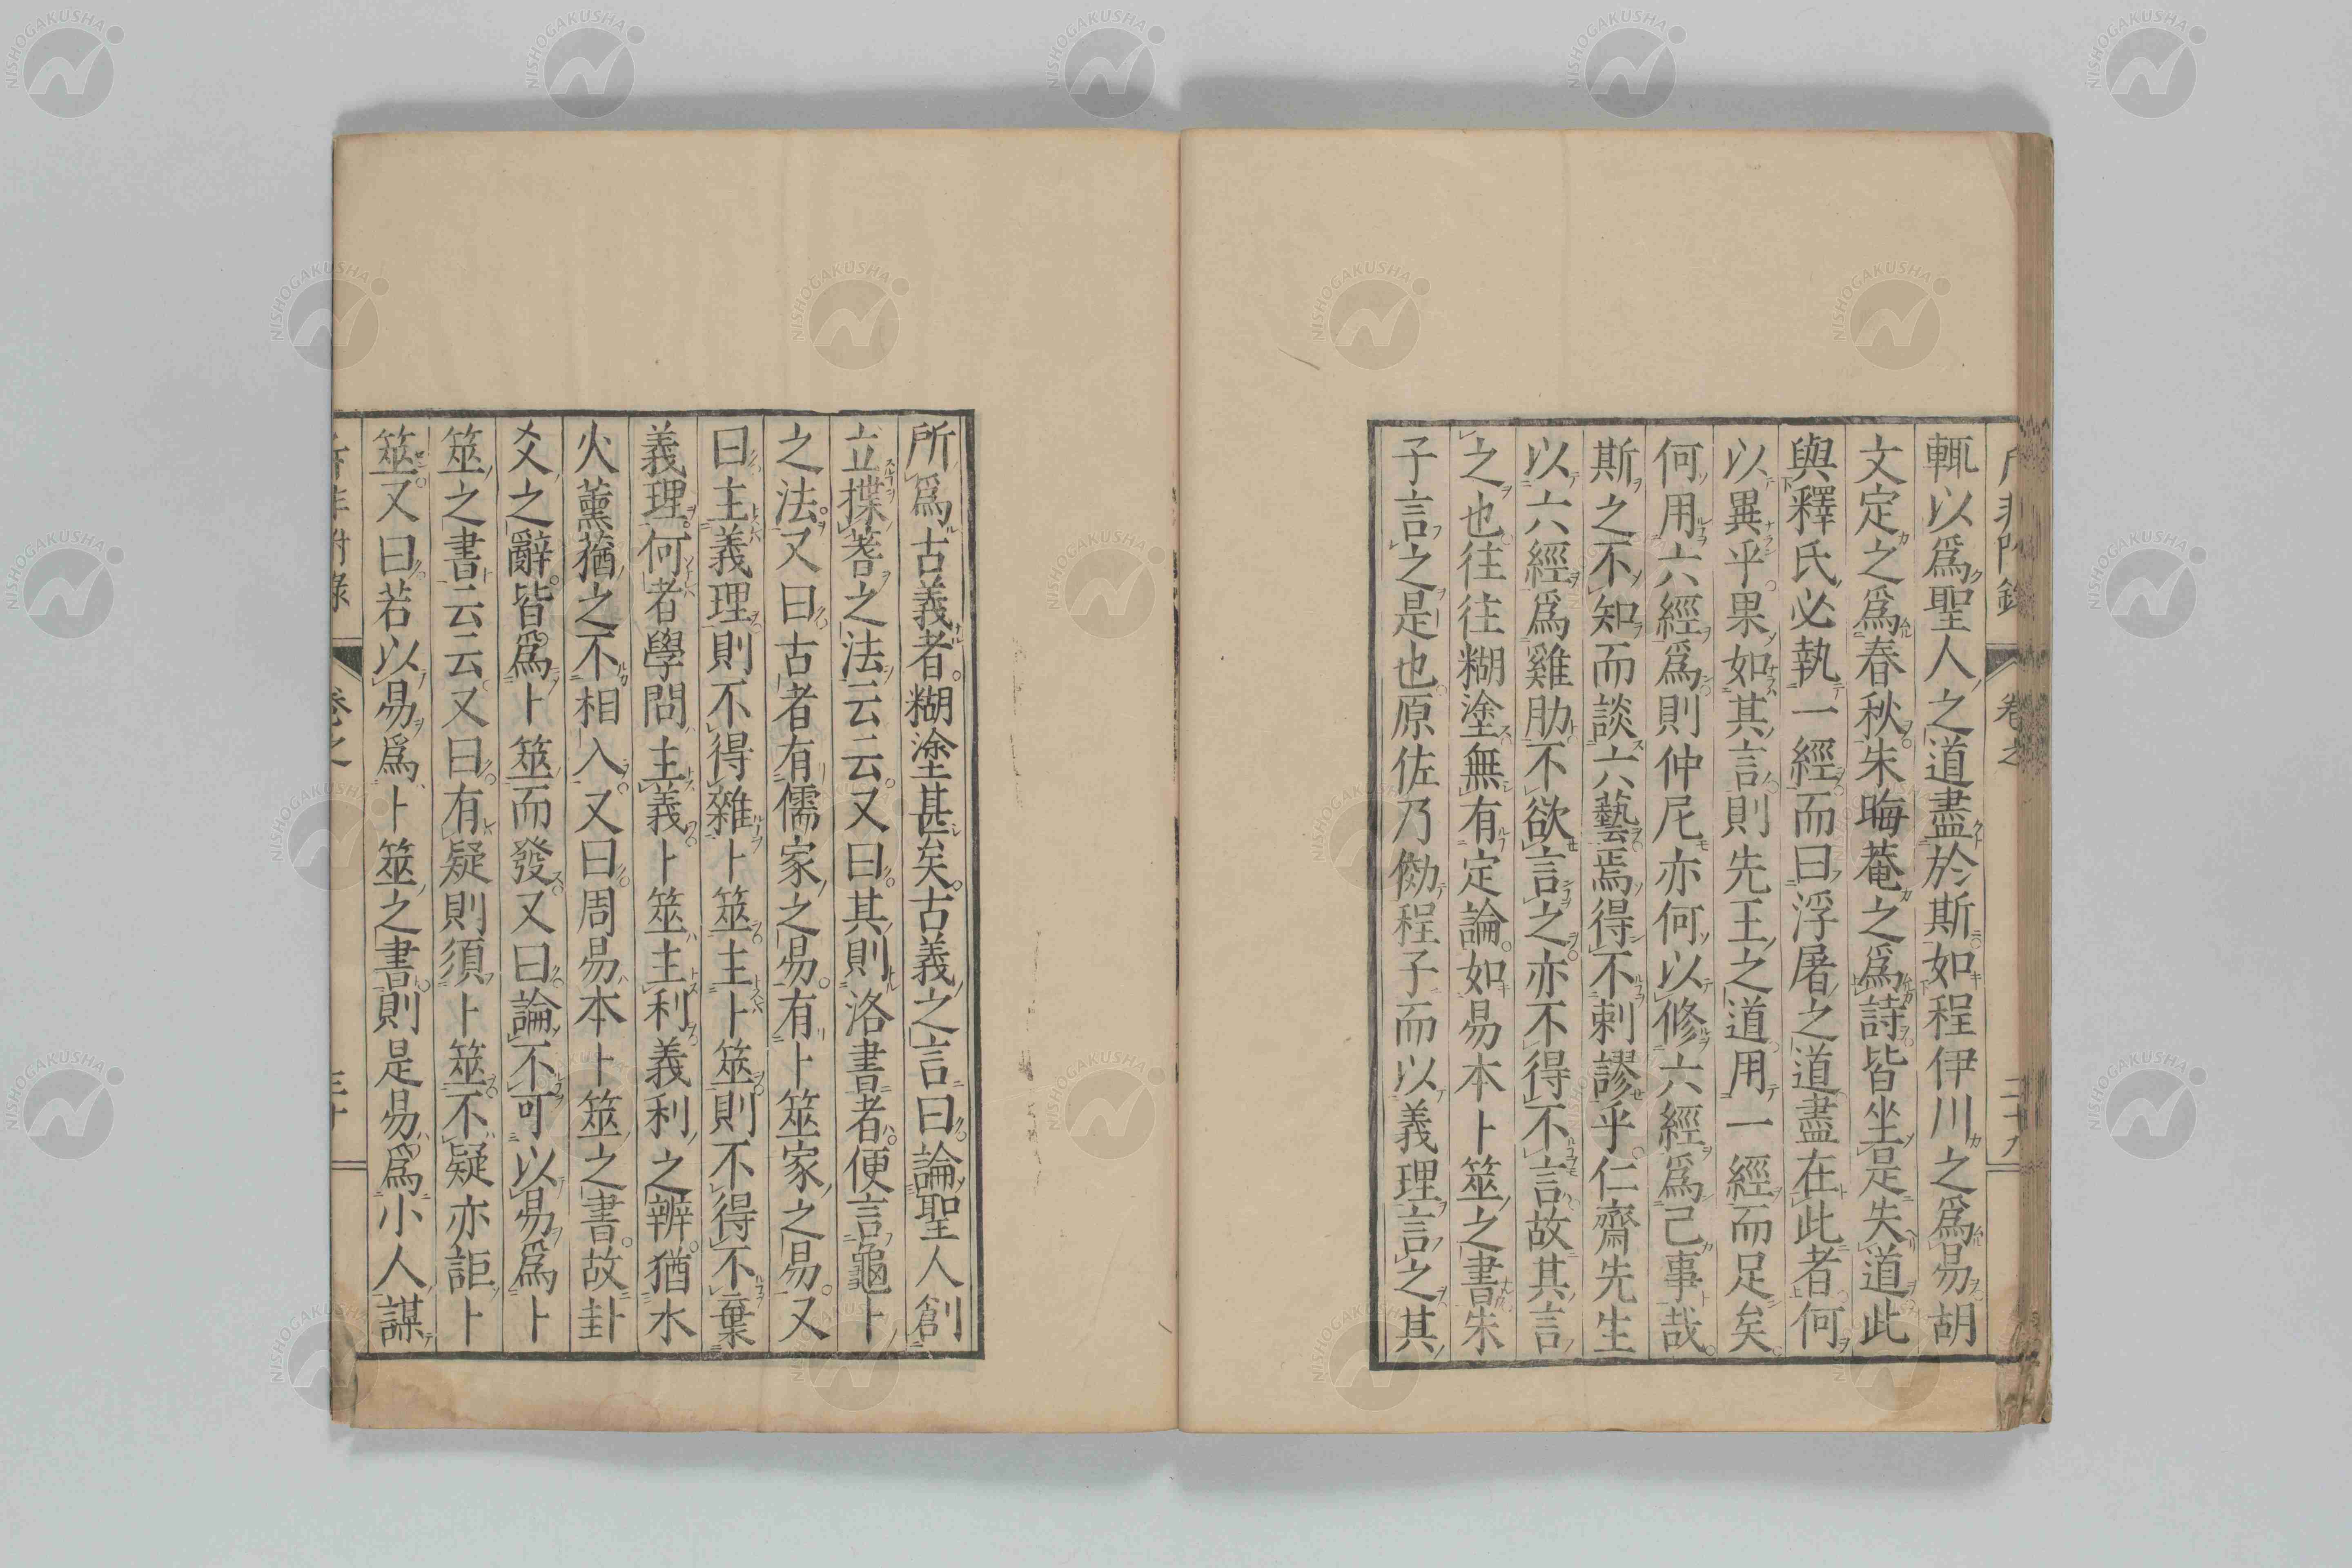 輒以爲聖人之道盡於斯如程伊川之爲易胡
文定之爲春秋朱晦菴之爲詩皆坐是失道此
與釋氏必執一經而曰浮屠之道盡在此者何
以異乎果如其言則先王之道用一經而足矣
何用六經爲則仲尼亦何以修六經爲己事哉
斯之不知而談六藝焉得不剌謬乎仁齋先生
以六經爲雞肋不欲言之亦不得不言故其言
之也往往糊塗無有定論如易本卜筮之書朱
子言之是也原佐乃傚程子而以義理言之其
所爲古義者糊塗甚矣古義之言曰論聖人創
立揲蓍之法云云又曰其則洛書者便言龜卜
之法又曰古者有儒家之易有卜筮家之易又
曰主義理則不得雜卜筮主卜筮則不得不棄
義理何者學問主義卜筮主利義利之辨猶水
火薰蕕之不相入又曰周易本卜筮之書故卦
爻之辭皆爲卜筮而發又曰論不可以易爲卜
筮之書云云又曰有疑則須卜筮不疑亦詎卜
筮又曰若以易爲卜筮之書則是易爲小人謀
NISHOGAKUSHA